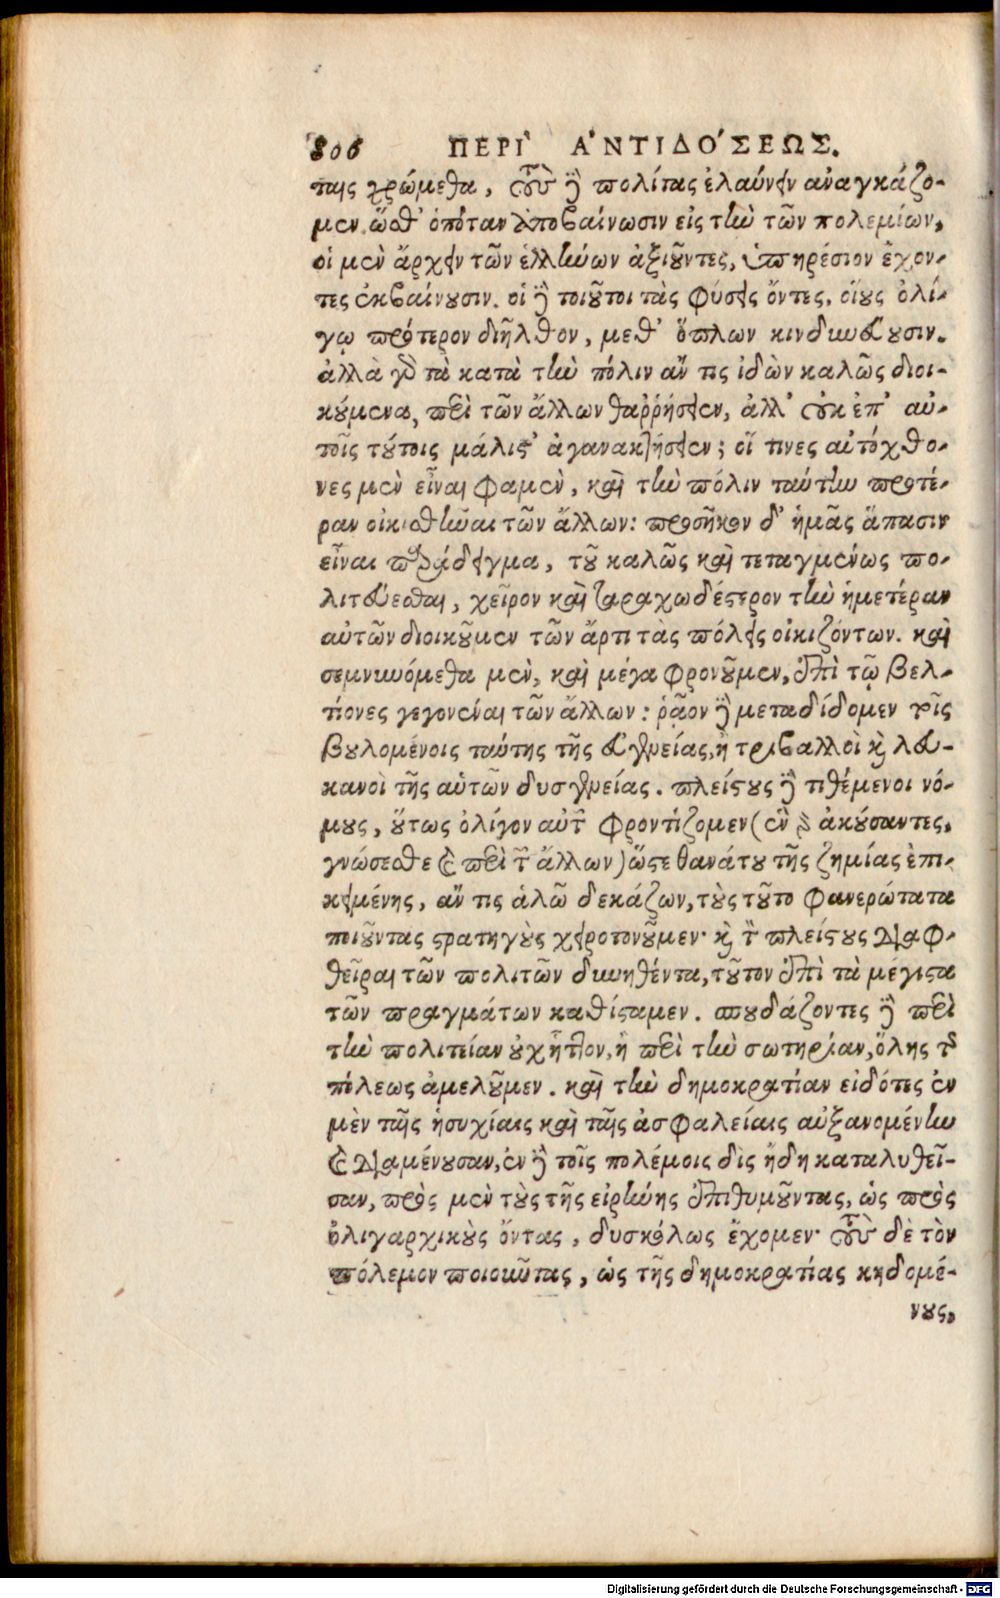 806 ΠΕΡΙ` Α'ΝΤΙΔΟ'ΣΕΩΣ.
ταις χρώμεθα, τοὺς δὲ πολίτας ἐλαύνειν ἀναγκάζο-
μεν. ὥσθ' ὁπόταν ἀποβαίνωσιν εἰς τὴν τῶν πολεμίων,
οἱ μὲν ἄρχειν τῶν ἑλλήνων ἀξιοῦντες, ὑπηρέσιον ἔχον-
τες ἐκβαίνουσιν. οἱ δὲ τοιοῦτοι τὰς φύσεις ὄντες, οἵους ὀλί-
γῳ πρότερον διῆλθον, μεθ' ὅπλων κινδυνεύουσιν.
ἀλλὰ γὰρ τὰ κατὰ τὴν πόλιν ἄν τις ἰδὼν καλῶς διοι-
κούμενα, περὶ τῶν ἄλλων θαῤῥήσειεν, ἀλλ' οὐκ ἐπ' αὐ-
τοῖς τούτοις μάλιστ' ἀγανακτήσειεν; οἵ τινες αὐτόχθο-
νες μὲν εἶναι φαμὲν, καὶ τὴν πόλιν ταύτην προτέ-
ραν οἰκισθῆναι τῶν ἄλλων: προσῆκον δ' ἡμᾶς ἅπασιν
εἶναι παράδειγμα, τοῦ καλῶς καὶ τεταγμένως πο-
λιτεύεσθαι, χεῖρον καὶ ταραχωδέστερον τὴν ἡμετέραν
αὐτῶν διοικοῦμεν τῶν ἄρτι τὰς πόλεις οἰκιζόντων. καὶ
σεμνυνόμεθα μὲν, καὶ μέγα φρονοῦμεν, ἐπὶ τῷ βελ-
τίονες γεγονέναι τῶν ἄλλων: ῥᾷον δὲ μεταδίδομεν τοῖς
βουλομένοις ταύτης τῆς εὐγενείας, ἢ τριβαλλοὶ καὶ λευ-
κανοὶ τῆς αὑτῶν δυσγενείας. πλείστους δὲ τιθέμενοι νό-
μους, οὕτως ὀλίγον αὐτῶν φροντίζομεν (ἓν γὰρ ἀκούσαντες,
γνώσεσθε καὶ περὶ τῶν ἄλλων) ὥστε θανάτου τῆς ζημίας ἐπι-
κειμένης, ἄν τις ἁλῶ δεκάζων, τοὺς τοῦτο φανερώτατα
ποιοῦντας στρατηγοὺς χειροτονοῦμεν· καὶ τὸν πλείστους διαφ-
θεῖραι τῶν πολιτῶν δυνηθέντα, τοῦτον ἐπὶ τὰ μέγιστα
τῶν πραγμάτων καθίσταμεν. σπουδάζοντες δὲ περὶ
τὴν πολιτείαν οὐχ ἧττον, ἢ περὶ τὴν σωτηρίαν, ὅλης τῆς
πόλεως ἀμελοῦμεν. καὶ τὴν δημοκρατίαν εἰδότες ἐν
μὲν ταῖς ἡσυχίαις καὶ ταῖς ἀσφαλείαις αὐξανομένην
καὶ διαμένουσαν, ἐν δὲ τοῖς πολέμοις δὶς ἤδη καταλυθεῖ-
σαν, πρὸς μὲν τοὺς τῆς εἰρήνης ἐπιθυμοῦντας, ὡς πρὸς
ὀλιγαρχικοὺς ὄντας, δυσκόλως ἔχομεν· τοὺς δὲ τὸν
πόλεμον ποιοῦντας, ὡς τῆς δημοκρατίας κηδομέ-
νους,
Digitalisierung gefördert durch die Deutsche Forschungsgemeinschaft - DFG